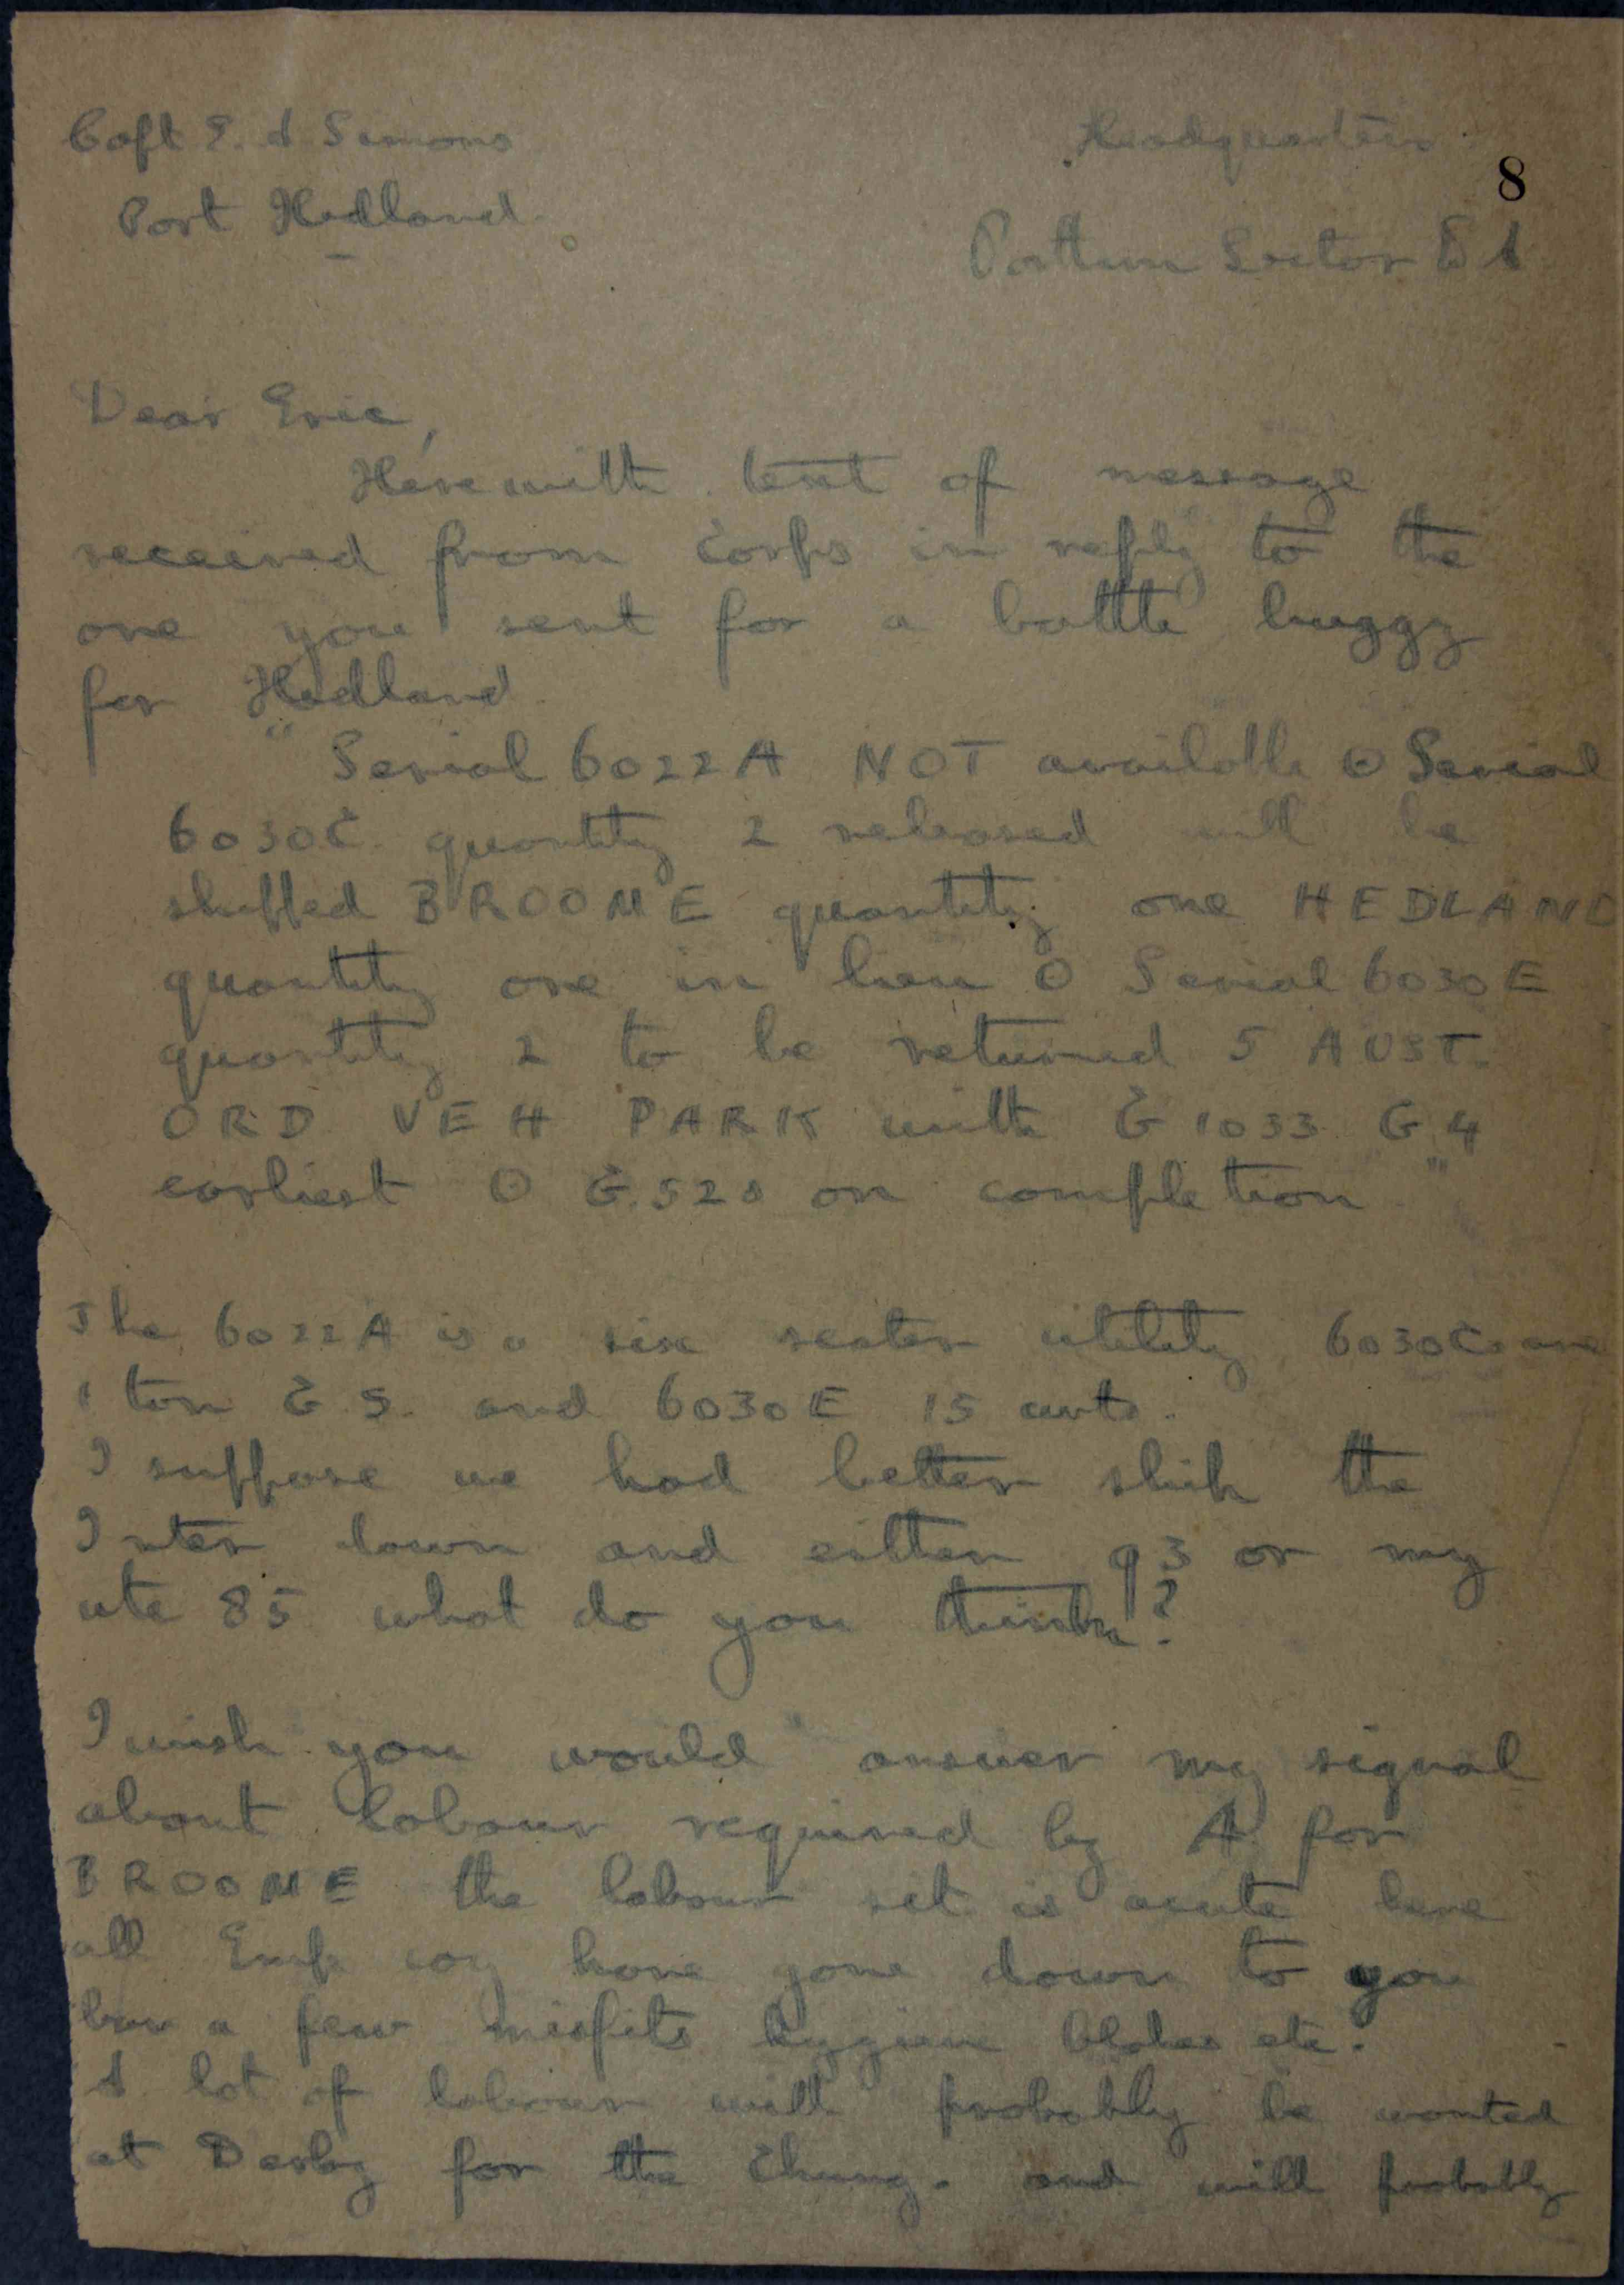 Capt E. A Simons
Headquarters
8
Port Hedland
Sector
Dear Eric,
Herewith text of message
received from Corps in reply to the
one you sent for a battle buggy
for Hedland
"Serial 6022A NOT available O Serial
6030C quantity 2 released will be
shipped BROOME quantity one HEDLAND
quantity one in lieu O Serial 6030E
quantity 2 to be returned 5 AUST.
ORD VEH PARK with G1033 G4
earliest O G.528 on completion"
The 6022A is a six seater utility 6030Cs are
1 ton G.S. and 6030E 15 cwts.
I suppose we had better ship the
Inter down and either 93 or my
ute 85 what do you think?
I wish you would answer my signal
about labour required by A for
BROOME the labour sit is acute here
all Emp coy have gone down to you
bar a few misfits hygiene blokes etc.
A lot of labour will probably be wanted
at Derby for the and will probably